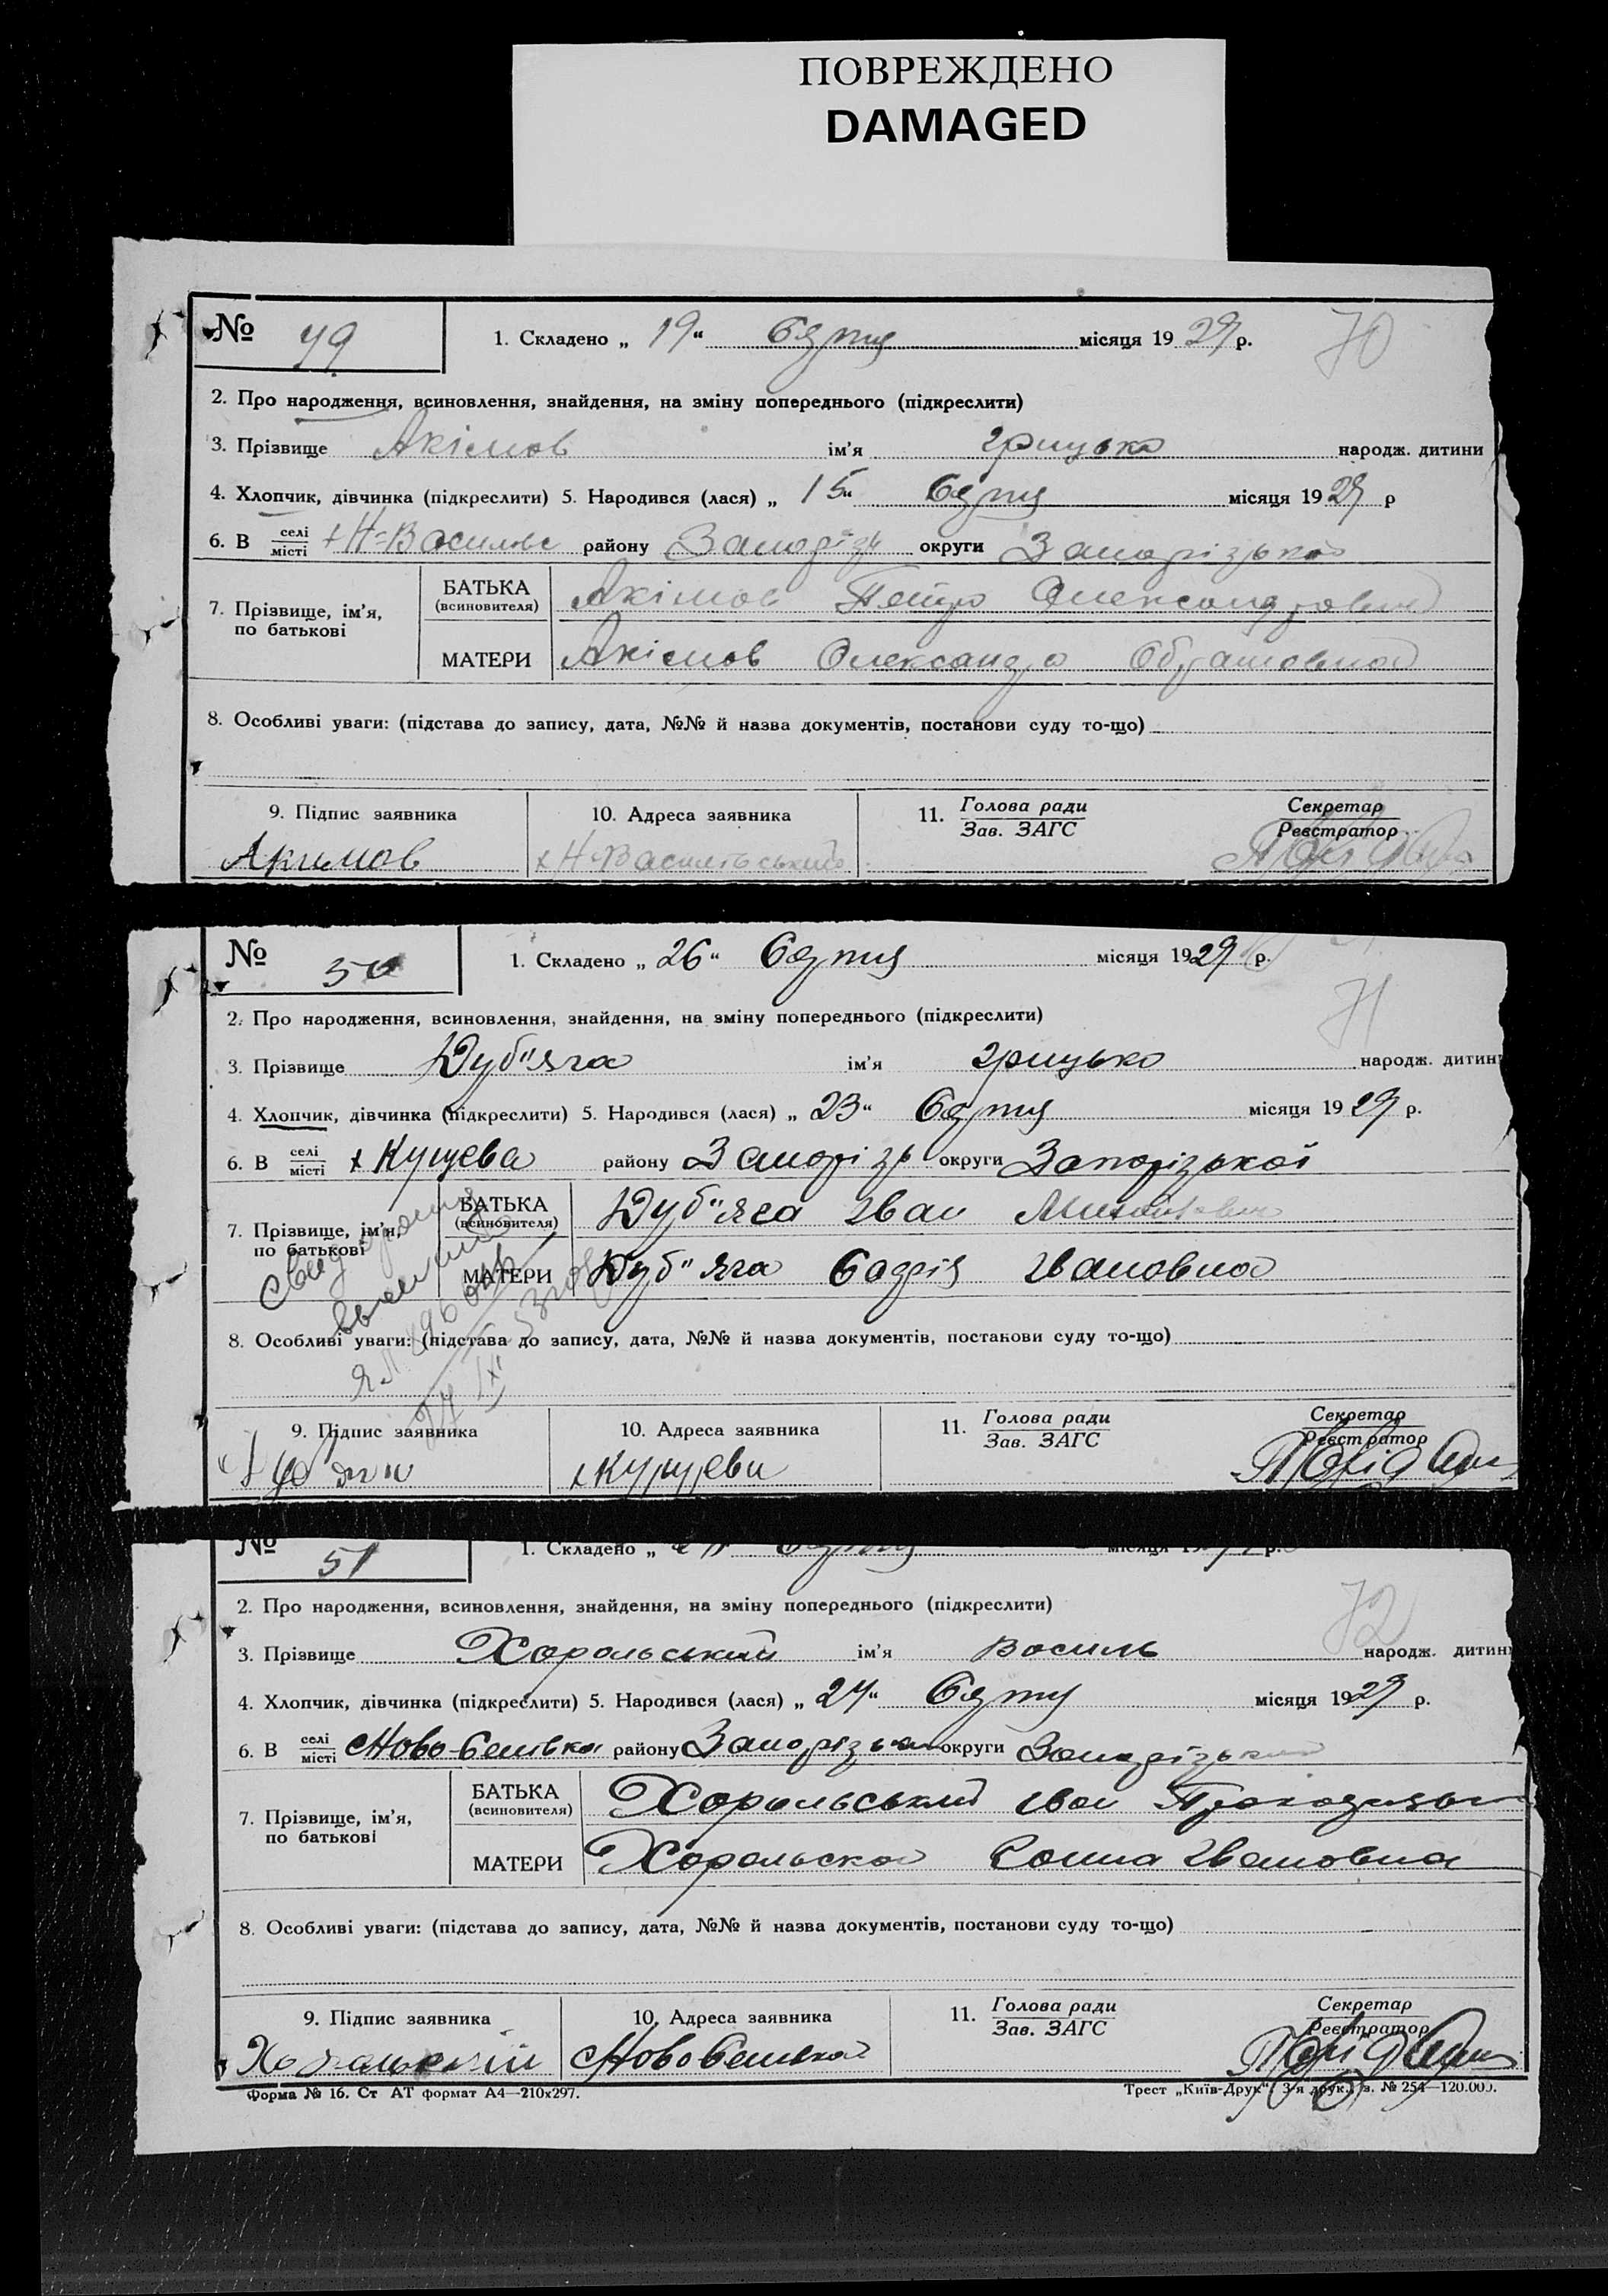 ПОВРЕЖДЕНО
DAMAGED
№ 49
1. Складено „ 19 “ Серпня місяця 1929 р.
70
2. Про народження, всиновлення, знайдення, на зміну попереднього (підкреслити)
3. Прізвище Акімов ім’я Грицько народж. дитини
4. Хлопчик, дівчинка (підкреслити) 5. Народився (лася) „ 15 “ Серпня місяця 1929 р
6. В селі місті х Н-Васильвс району Запорізь округи Запорізької
7. Прізвище, ім’я, по батькові
БАТЬКА (всиновителя) Акімов Петро Олександрович
МАТЕРИ Акімов Олександра
8. Особливі уваги: (підстава до запису, дата, №№ й назва документів, постанови суду то-що)
9. Підпис заявника 10. Адреса заявника 11. Голова ради Зав. ЗАГС Секретар Реєстратор
Акимов х Н-Васильвський
№ 50
1. Складено „ 26 “ Серпня місяця 1929 р.
71
2. Про народження, всиновлення, знайдення, на зміну попереднього (підкреслити)
3. Прізвище Дуб"яга ім’я Грицько народж. дитин
4. Хлопчик, дівчинка (підкреслити) 5. Народився (лася) „ 23 “ Серпня місяця 1929 р.
6. В селі місті х Кущева району Запорізь округи Запорізької
7. Прізвище, ім’я, по батькові
БАТЬКА (всиновителя) Дуб"яга Іван
МАТЕРИ Дуб"яга Івановна
8. Особливі уваги: (підстава до запису, дата, №№ й назва документів, постанови суду то-що)
9. Підпис заявника 10. Адреса заявника 11. Голова ради Зав. ЗАГС Секретар Реєстратор
х Кущева
№ 51
1. Складено „ Серпня місяця р.
72
2. Про народження, всиновлення, знайдення, на зміну попереднього (підкреслити)
3. Прізвище Хорольський ім’я Василь народж. дитин
4. Хлопчик, дівчинка (підкреслити) 5. Народився (лася) „ 24 “ Серпня місяця 1929 р.
6. В селі місті району округи
7. Прізвище, ім’я, по батькові
БАТЬКА (всиновителя) Хорольський Іван
МАТЕРИ Хорольска Івановна
8. Особливі уваги: (підстава до запису, дата, №№ й назва документів, постанови суду то-що)
9. Підпис заявника 10. Адреса заявника 11. Голова ради Зав. ЗАГС Секретар Реєстратор
Форма № 16. Ст АТ формат А4—210х297. Трест „Київ-Друк“, 3-я друк. з. № 254—120.000.